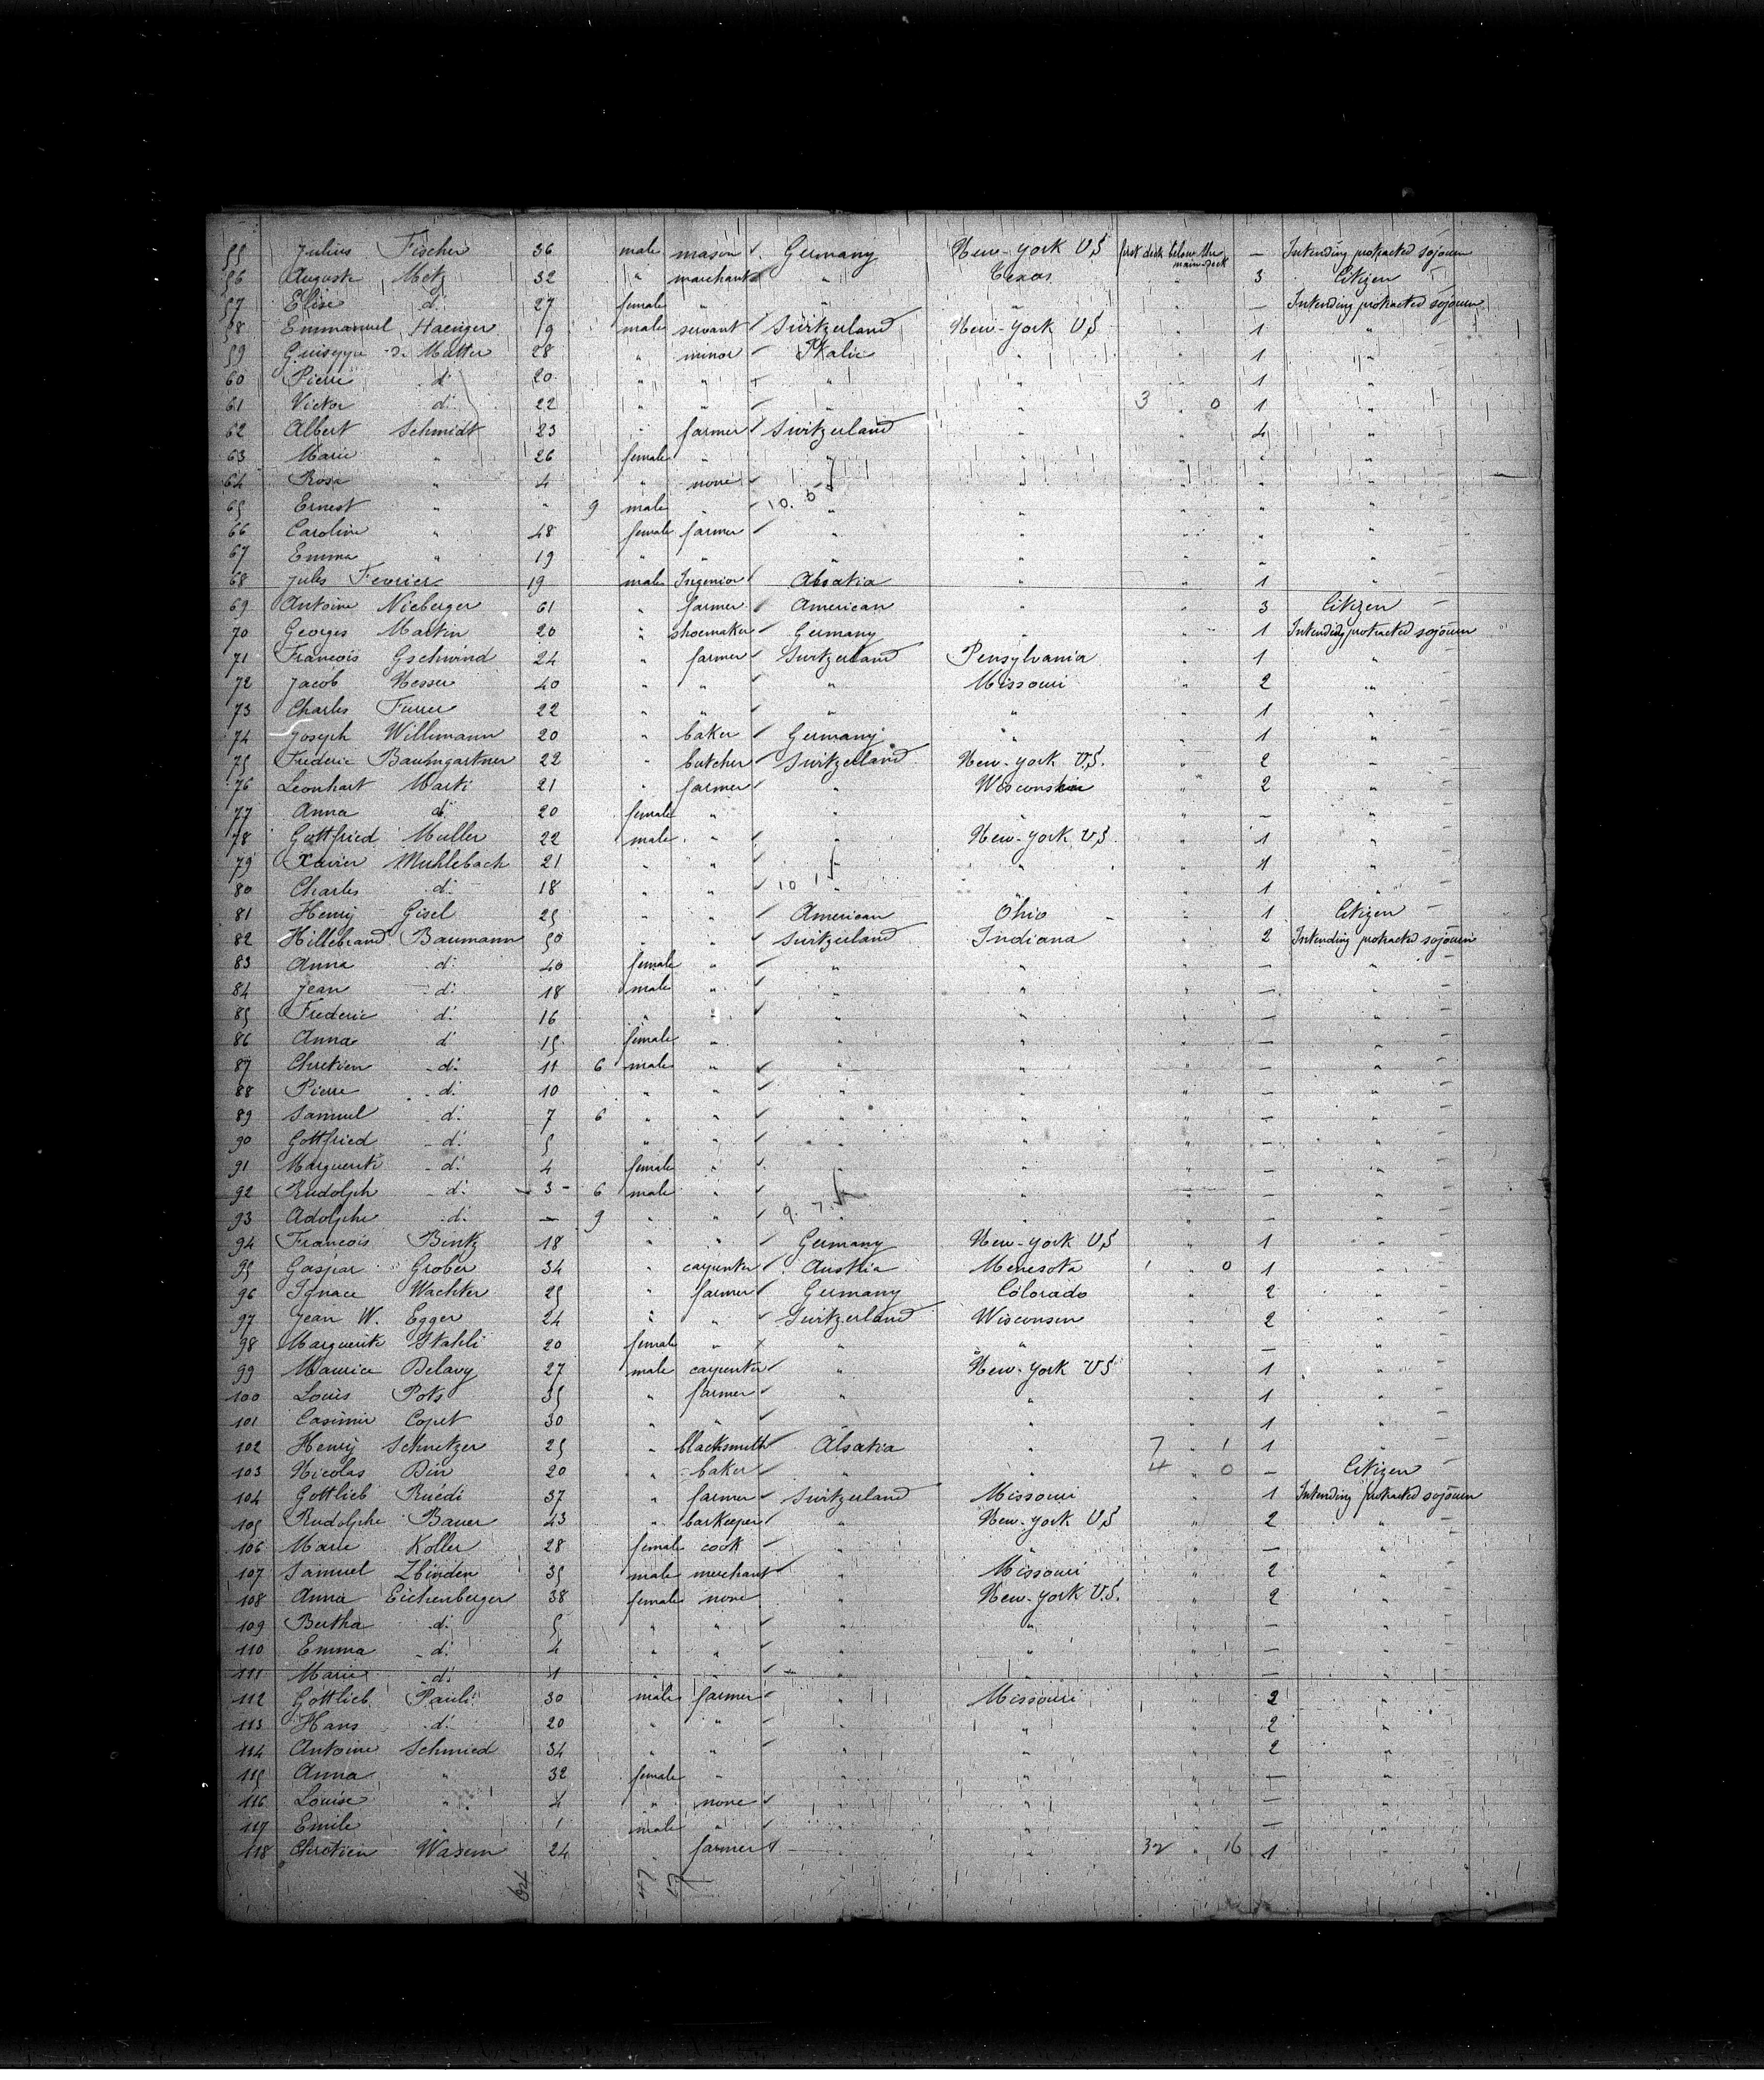 55 Julius Fischer 36 male mason Germany New-York US first deck below the main-deck — Intending protracted sojourn
56 Auguste Metz 32 " marchant " Texas " 3 Citizen
57 Elise d: 27 female " " " " — Intending protracted sojourn
58 Emmanuel Haeniger 19 male servant Switzerland New-York US " 1 "
59 Guiseppe Matter 28 " minor Italie " " 1 "
60 Pierre d: 20 " " " " " 1 "
61 Victor d: 22 " " " " 3 " 0 1 "
62 Albert Schmidt 23 " farmer Switzerland " " 4 "
63 Marie " 26 female " " " " " "
64 Rosa " 4 " none " " " " "
65 Ernest " " 9 male " 10. 6 " " " " "
66 Caroline " 48 female farmer " " " " "
67 Emma " 19 " " " " " " "
68 Jules Fevrier 19 male Ingenior Alsatia " " 1 "
69 Antoine Nieberger 61 " farmer American " " 3 Citizen
70 Georges Martin 20 " shoemaker Germany " " 1 Intending protracted sojourn
71 Francois Gschwind 24 " farmer Switzerland Pensylvania " 1 "
72 Jacob Nesser 40 " " " Missouri " 2 "
73 Charles Furrer 22 " " " " " 1 "
74 Joseph Willimann 20 " baker Germany " " 1 "
75 Frederic Baumgartner 22 " butcher Switzerland New-York U.S. " 2 "
76 Leonhart Marti 21 " farmer " Wisconsin " 2 "
77 Anna d: 20 female " " " " — "
78 Gottfried Muller 22 male " " New-York US " 1 "
79 Xavier Muhlebach 21 " " " " " 1 "
80 Charles d: 18 " " 10 1 " " " 1 "
81 Henry Gisel 25 " " American Ohio " 1 Citizen
82 Hillebrand Baumann 50 " " Switzerland Indiana " 2 Intending protracted sojourn
83 Anna d: 40 female " " " " — "
84 Jean d: 18 male " " " " — "
85 Frederic d: 16 " " " " " — "
86 Anna d: 15 female " " " " — "
87 Chretien d: 11 6 male " " " " — "
88 Pierre d: 10 " " " " " — "
89 Samuel d: 7 6 " " " " " — "
90 Gottfried d: 5 " " " " " — "
91 Marguerite d: 4 female " " " " — "
92 Rudolph d: 3 6 male " " " " — "
93 Adolphe d: — 9 " " 9. 7. " " " — "
94 Francois Bentz 18 " " Germany New-York US " 1 "
95 Gaspar Grober 34 " carpenter Austria Menesota 1 " 0 1 "
96 Ignace Wachter 25 " farmer Germany Colorado " 2 "
97 Jean W. Egger 24 " " Switzerland Wisconsin " 2 "
98 Marguerite Stahli 20 female " " " " — "
99 Maurice Delavy 27 male carpenter " New-York US " 1 "
100 Louis Pots 35 " farmer " " " 1 "
101 Casimir Copet 30 " " " " " 1 "
102 Henry Schnetzer 25 " blacksmith Alsatia " 7 " 1 1 "
103 Nicolas Din 20 " baker " " 4 " 0 — Citizen
104 Gottlieb Ruedi 37 " farmer Switzerland Missouri " 1 Intending protracted sojourn
105 Rudolphe Bauer 43 " barkeeper " New-York US " 2 "
106 Marie Koller 28 female cook " " " — "
107 Samuel Zbinden 35 male merchant " Missouri " 2 "
108 Anna Eichenberger 38 female none " New-York U.S. " 2 "
109 Bertha d: 5 " " " " " — "
110 Emma d: 4 " " " " " — "
111 Marie d: 1 " " " " " — "
112 Gottlieb Pauli 30 male farmer " Missouri " 2 "
113 Hans d: 20 " " " " " 2 "
114 Antoine Schmied 34 " " " " " 2 "
115 Anna " 32 female " " " " — "
116 Louise " 4 " none " " " — "
117 Emile " 1 male " " " " — "
118 Chretien Wasem 24 " farmer " " 32 " 16 1 "
64 47 17